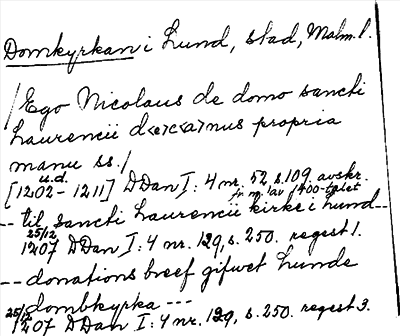 Domkyrkan i Lund, stad, Malm. l.
/Ego Nicolaus de domo sancti
Laurencii d<e>c<a>nus propria
manu ss./
u.d.
[1202-1211] DDan I:4 nr. 52 s.109. avskr.
fr. m. av 1400-talet
-- til sancti Laurencii kirke i hund --
25/12
1207 DDan I:4 nr. 129, s. 250. regest 1.
-- donations breef gifwet hunde
dombkyrka ---
25/12
1207 DDan I:4 nr. 129, s. 250. regest 3.